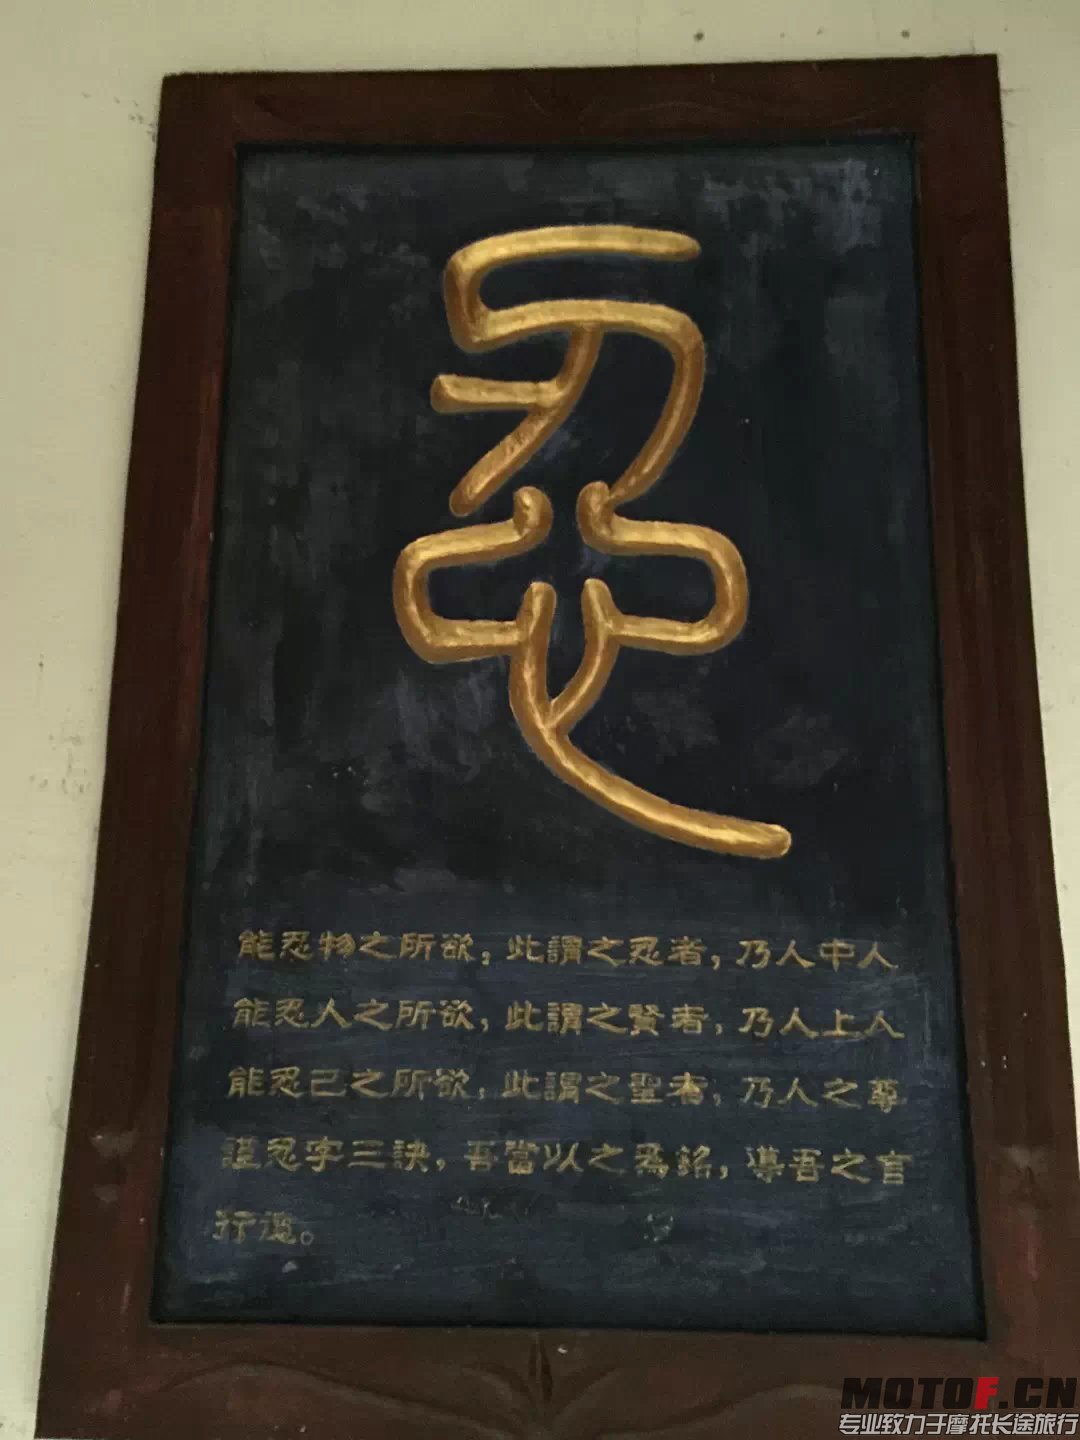 忍
能忍物之所欲，此謂之忍者，乃人中人
能忍人之所欲，此謂之賢者，乃人上人
能忍己之所欲，此謂之聖者，乃人之尊
謹忍字三訣，吾當以之為銘，導吾之言
行
MOTOF.CN
专业致力于摩托长途旅行